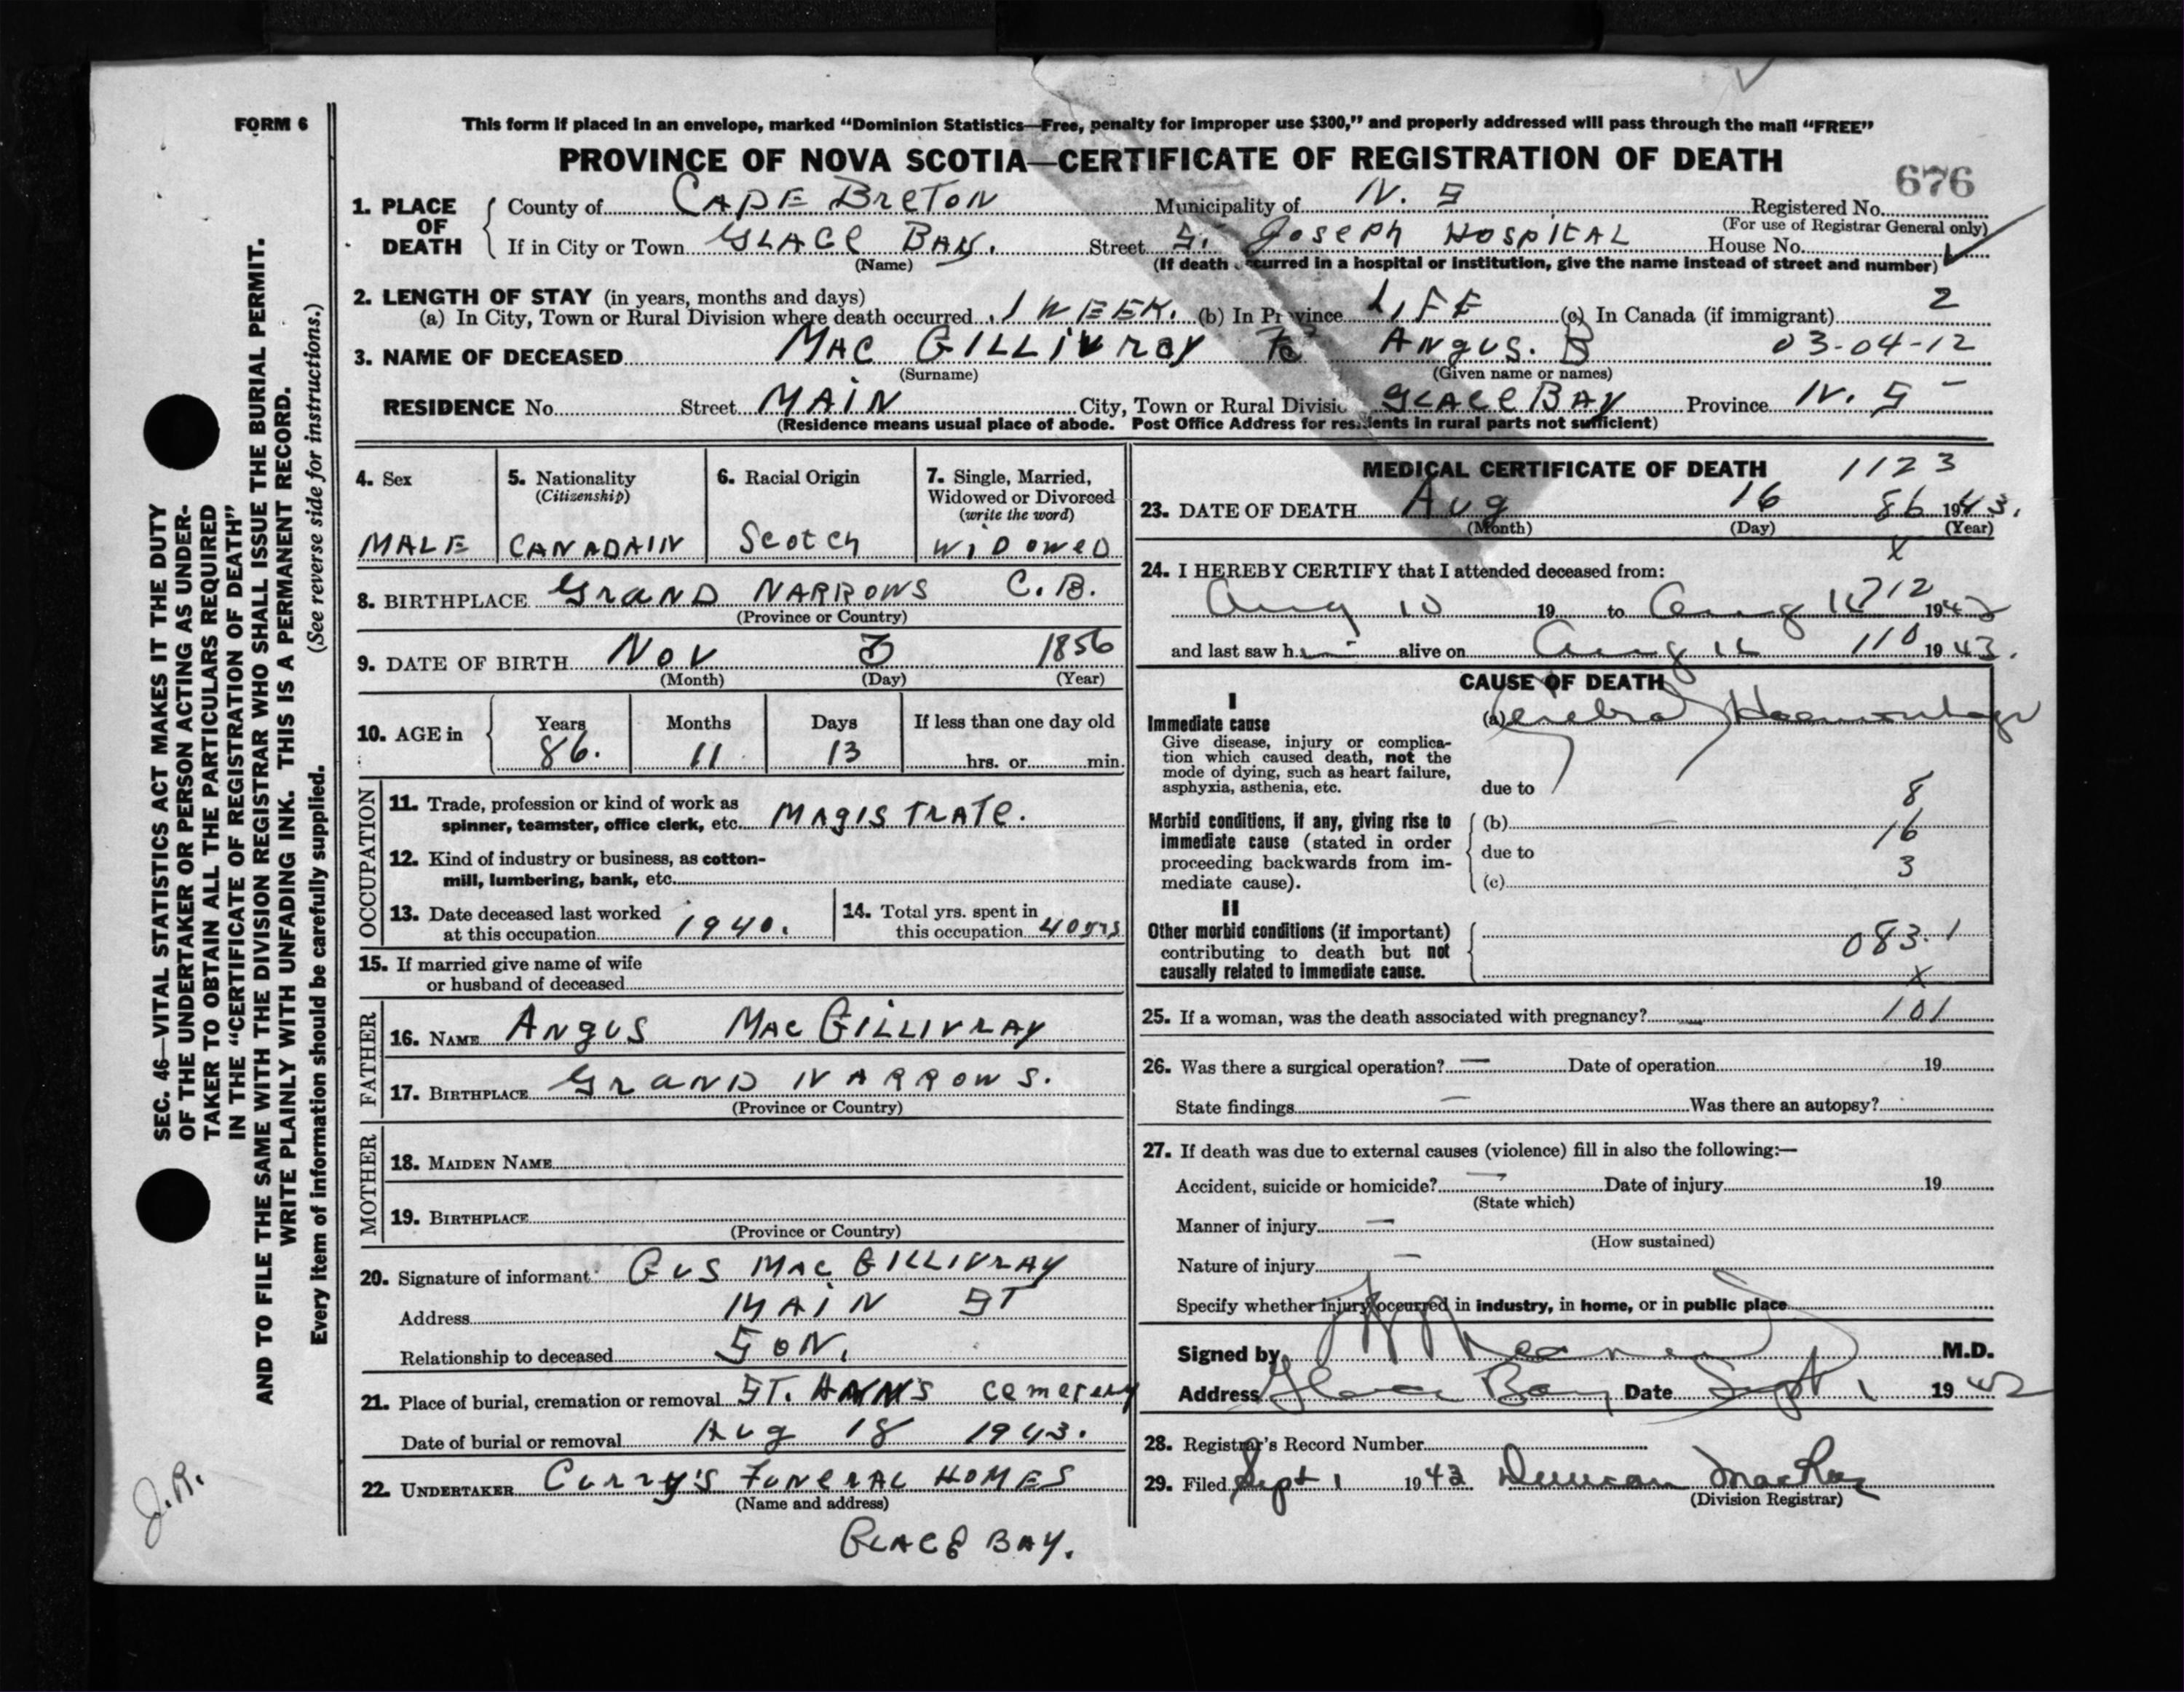 FORM 6
This form if placed in an envelope, marked “Dominion Statistics—Free, penalty for improper use $300,” and properly addressed will pass through the mail “FREE”
PROVINCE OF NOVA SCOTIA—CERTIFICATE OF REGISTRATION OF DEATH
676
1. PLACE OF DEATH
County of CAPE BRETON Municipality of N. S Registered No.
(For use of Registrar General only)
If in City or Town GLACE BAY. Street S. Joseph HOSPITAL House No.
(Name) (If death occurred in a hospital or institution, give the name instead of street and number)
2. LENGTH OF STAY (in years, months and days)
(a) In City, Town or Rural Division where death occurred 1 WEEK. (b) In Province LIFE (c) In Canada (if immigrant) 2
3. NAME OF DECEASED MAC GILLIVRAY ANGUS. B 03-04-12
(Surname) (Given name or names)
RESIDENCE No. Street MAIN City, Town or Rural Divisio GLACE BAY Province N. S
(Residence means usual place of abode. Post Office Address for residents in rural parts not sufficient)
4. Sex
MALE
5. Nationality
(Citizenship)
CANADAIN
6. Racial Origin
Scotch
7. Single, Married,
Widowed or Divorced
(write the word)
WIDOWED
8. BIRTHPLACE GRAND NARROWS C.B.
(Province or Country)
9. DATE OF BIRTH NOV 3 1856
(Month) (Day) (Year)
10. AGE in
Years Months Days If less than one day old
86. 11 13 hrs. or min.
OCCUPATION
11. Trade, profession or kind of work as
spinner, teamster, office clerk, etc. MAGISTRATE.
12. Kind of industry or business, as cotton-
mill, lumbering, bank, etc.
13. Date deceased last worked
at this occupation 1940.
14. Total yrs. spent in
this occupation 40 yrs
15. If married give name of wife
or husband of deceased
FATHER
16. NAME ANGUS MAC GILLIVRAY
17. BIRTHPLACE GRAND NARROWS.
(Province or Country)
MOTHER
18. MAIDEN NAME
19. BIRTHPLACE
(Province or Country)
20. Signature of informant GUS MAC GILLIVRAY
Address MAIN ST
Relationship to deceased SON.
21. Place of burial, cremation or removal ST. ANN'S cemetery
Date of burial or removal Aug 18 1943.
22. UNDERTAKER Curry's FUNERAL HOMES
(Name and address)
GLACE BAY.
MEDICAL CERTIFICATE OF DEATH 1123
23. DATE OF DEATH Aug 16 86 1943.
(Month) (Day) (Year)
x
24. I HEREBY CERTIFY that I attended deceased from:
Aug 10 19 to Aug 16 712 1943
and last saw h alive on Aug 16 110 1943.
CAUSE OF DEATH
I
Immediate cause
Give disease, injury or complica-
tion which caused death, not the
mode of dying, such as heart failure,
asphyxia, asthenia, etc.
(a) Cerebral Haemorrhage
due to
8
Morbid conditions, if any, giving rise to
immediate cause (stated in order
proceeding backwards from im-
mediate cause).
(b)
16
due to
3
(c)
II
Other morbid conditions (if important)
contributing to death but not
causally related to immediate cause.
083.1
x
25. If a woman, was the death associated with pregnancy? 101
26. Was there a surgical operation? — Date of operation 19
State findings — Was there an autopsy?
27. If death was due to external causes (violence) fill in also the following:—
Accident, suicide or homicide? — Date of injury 19
(State which)
Manner of injury —
(How sustained)
Nature of injury —
Specify whether injury occurred in industry, in home, or in public place
Signed by M.D.
Address Glace Bay Date Sept 1 1943
28. Registrar's Record Number
29. Filed Sept 1 1943 Duncan MacRae
(Division Registrar)
SEC. 46—VITAL STATISTICS ACT MAKES IT THE DUTY
OF THE UNDERTAKER OR PERSON ACTING AS UNDER-
TAKER TO OBTAIN ALL THE PARTICULARS REQUIRED
IN THE “CERTIFICATE OF REGISTRATION OF DEATH”
AND TO FILE THE SAME WITH THE DIVISION REGISTRAR WHO SHALL ISSUE THE BURIAL PERMIT.
WRITE PLAINLY WITH UNFADING INK. THIS IS A PERMANENT RECORD.
Every item of information should be carefully supplied. (See reverse side for instructions.)
J.R.